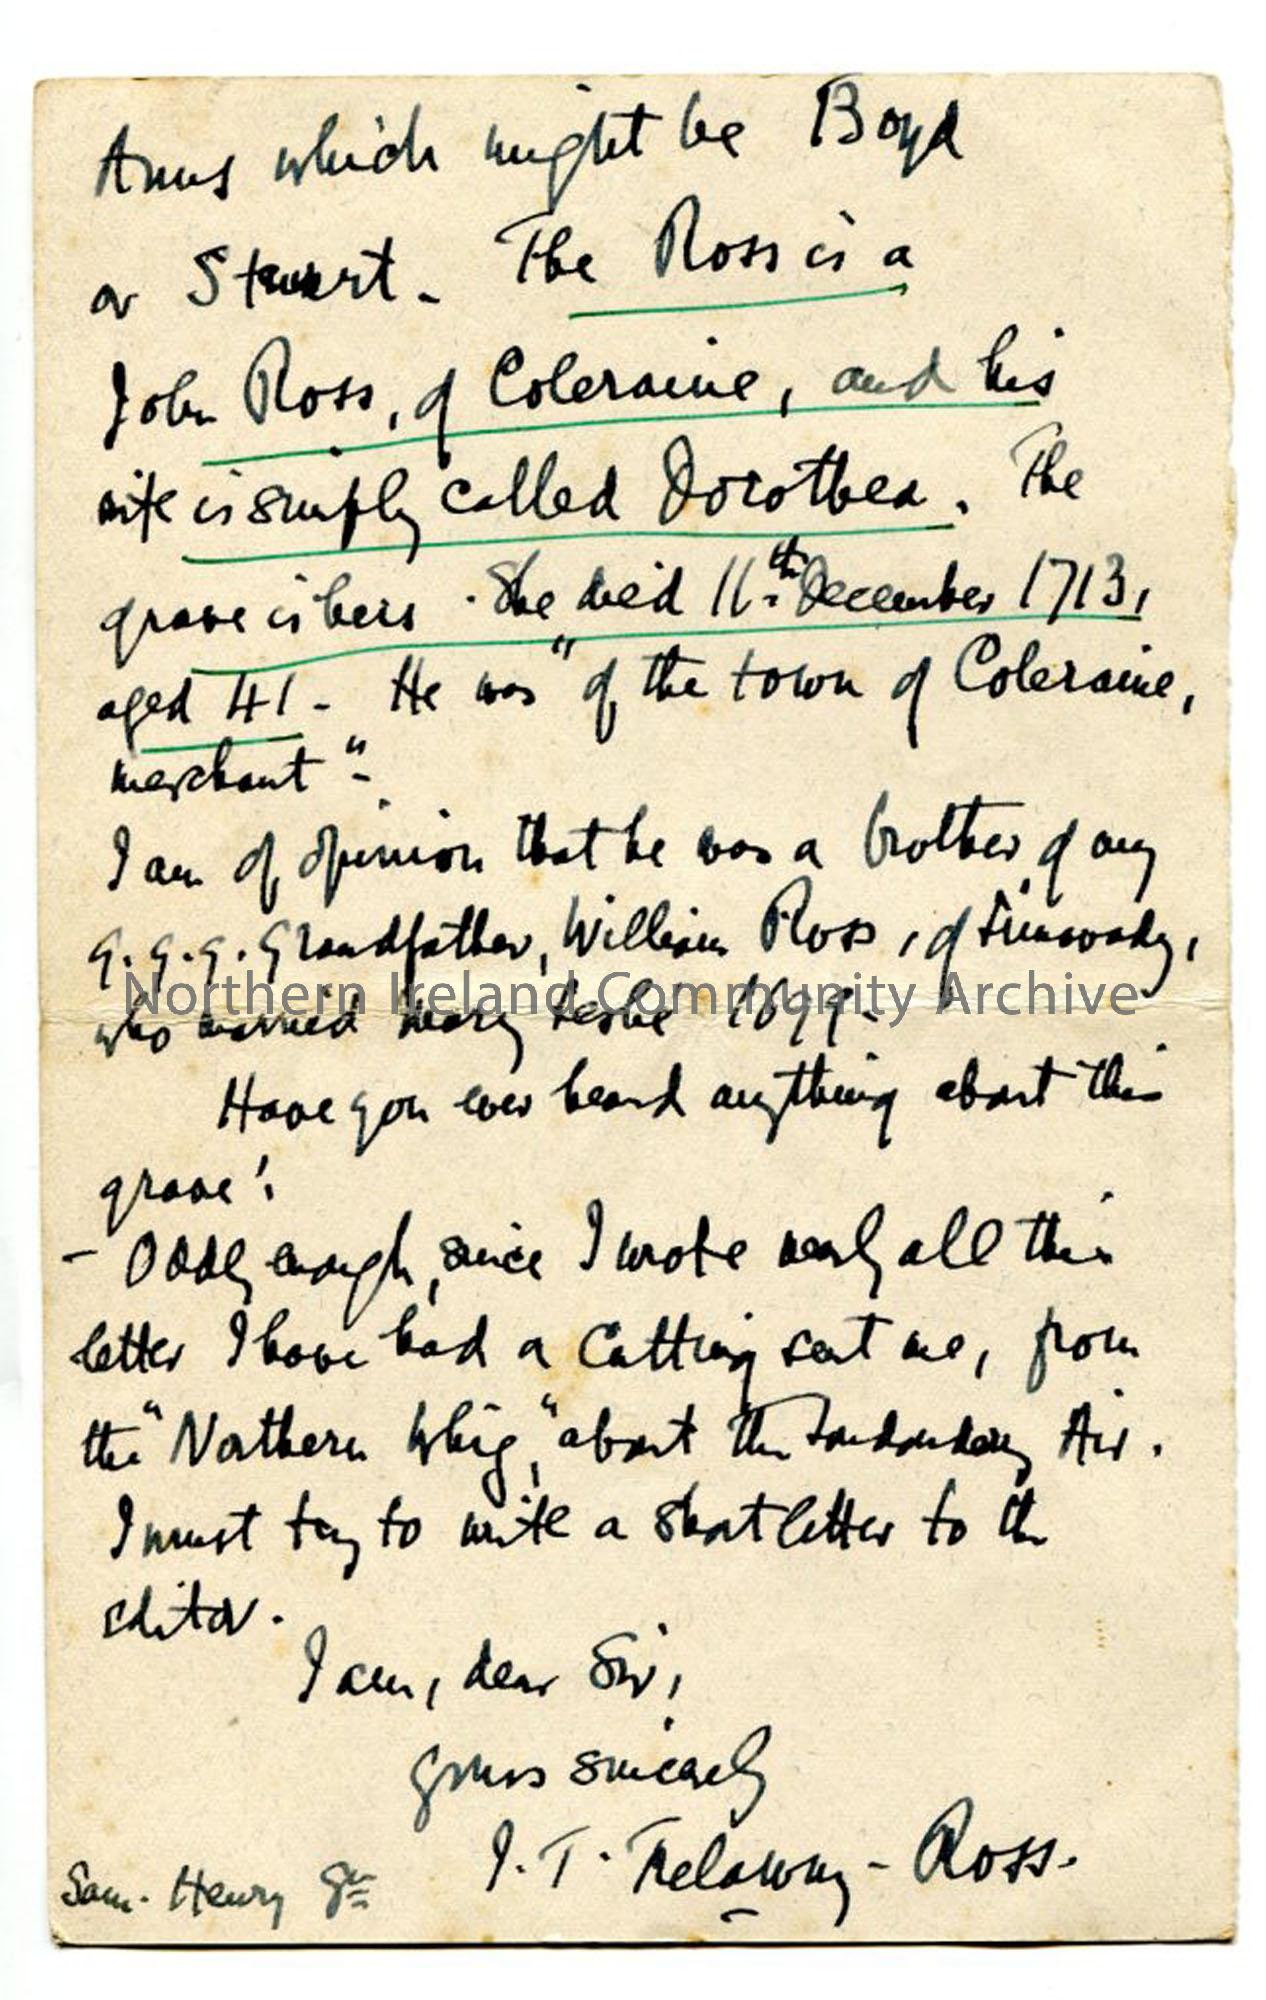 Arms which might be Boyd
or Stewart - The Ross is a
John Ross, of Coleraine, and his
wife is simply called Dorothea. The
grave is hers. She died 11th December 1713,
aged 41 - He was "of the town of Coleraine,
merchant" -
I am of opinion that he was a brother of my
g. g. g. Grandfather, William Ross, of
Northern Ireland Community Archive
who married Mary Leslie 1699 -
Have you ever heard anything about this
grave?
- Oddly enough, since I wrote nearly all this
letter I have had a Cutting sent me, from
the "Northern Whig," about the Londonderry Air.
I must try to write a short letter to the
editor.
I am, dear Sir,
yours sincerely
J. T. Trelawny - Ross.
Sam. Henry